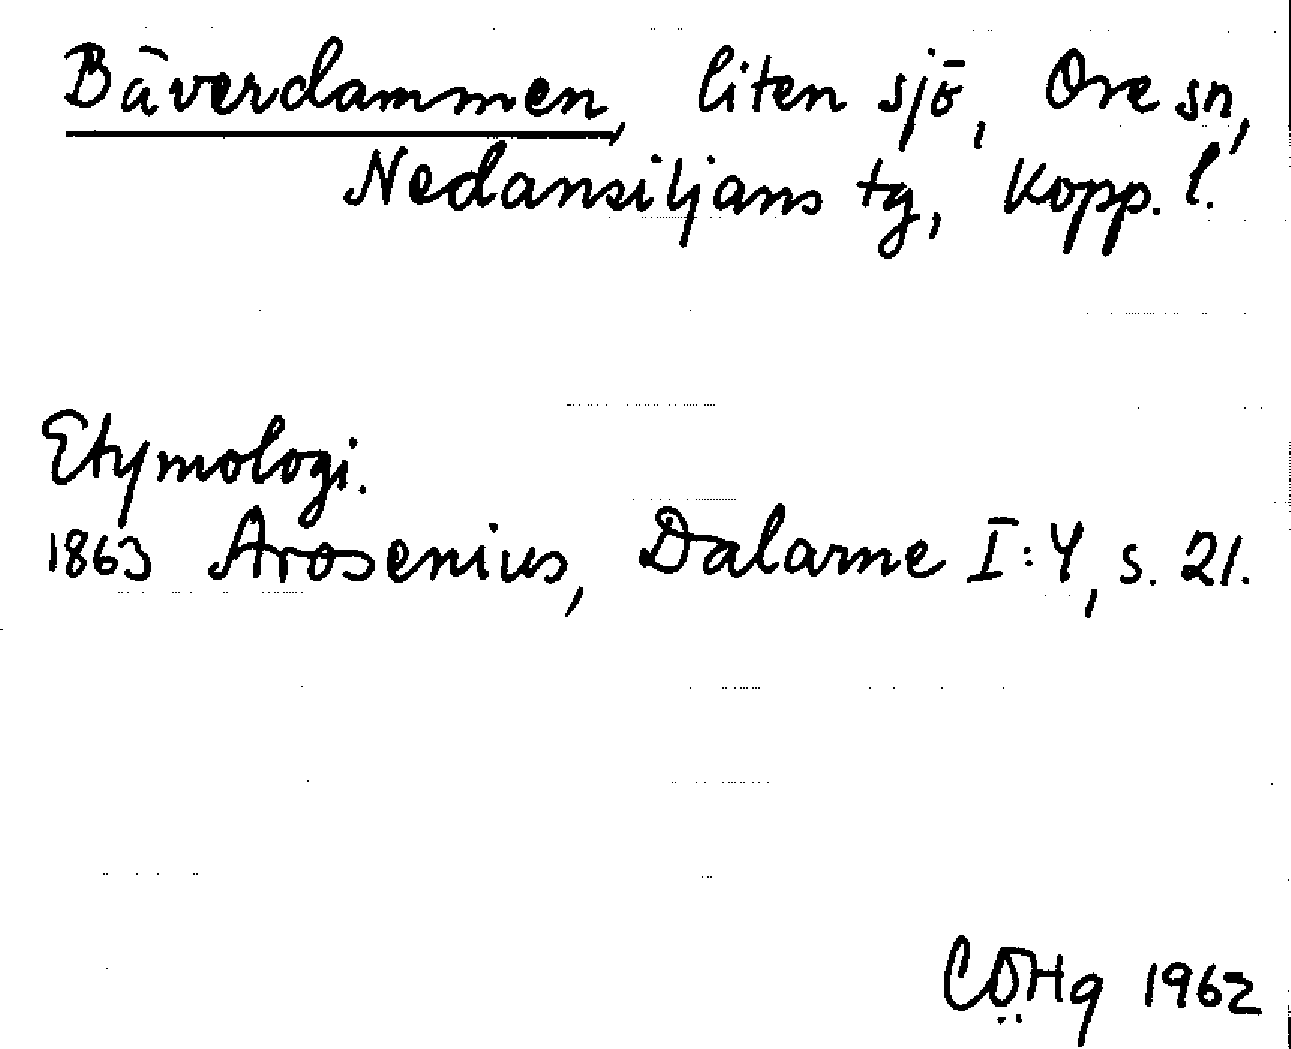 Bäverdammen, liten sjö, Ore sn,
Nedansiljans tg, Kopp. l.
Etymologi.
1863 Arosenius, Dalarne I:4, s. 21.
CÖHg 1962